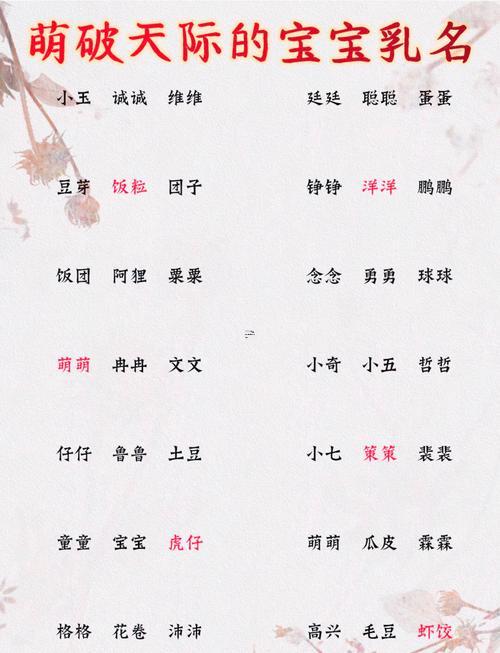 萌破天际的宝宝乳名
小玉 诚诚 维维 廷廷 聪聪 蛋蛋
豆芽 饭粒 团子 铮铮 洋洋 鹏鹏
饭团 阿狸 粟粟 念念 勇勇 球球
萌萌 冉冉 文文 小奇 小五 哲哲
仔仔 鲁鲁 土豆 小七 策策 裴裴
童童 宝宝 虎仔 萌萌 瓜皮 霖霖
格格 花卷 沛沛 高兴 毛豆 虾饺